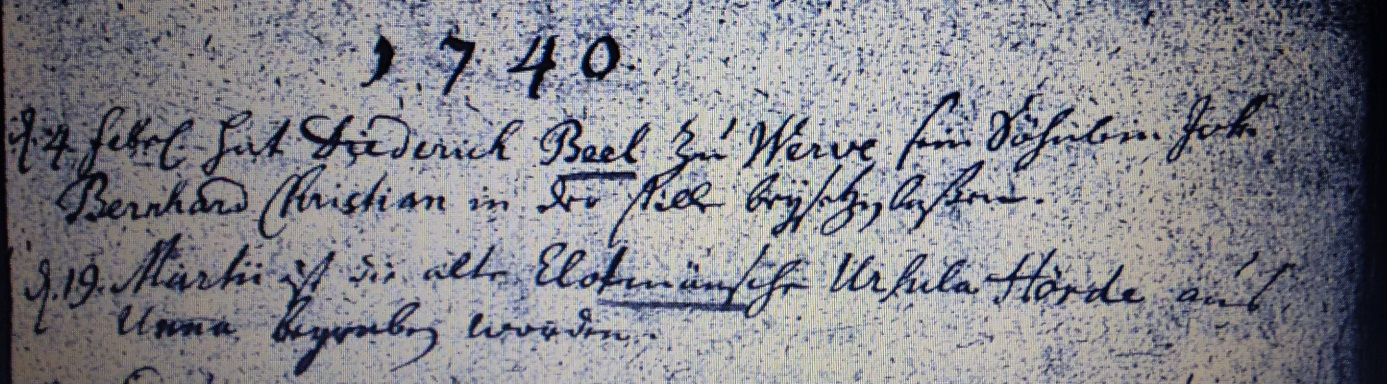 1740.
d. 4. Febr. hat Diederich Beel zu Werve sein Söhnlein Joh.
Bernhard Christian in der stille beysetzen laßen.
d. 19. Martii ist die alte Elotmänsche Ursula Hörde aus
Unna begraben worden.